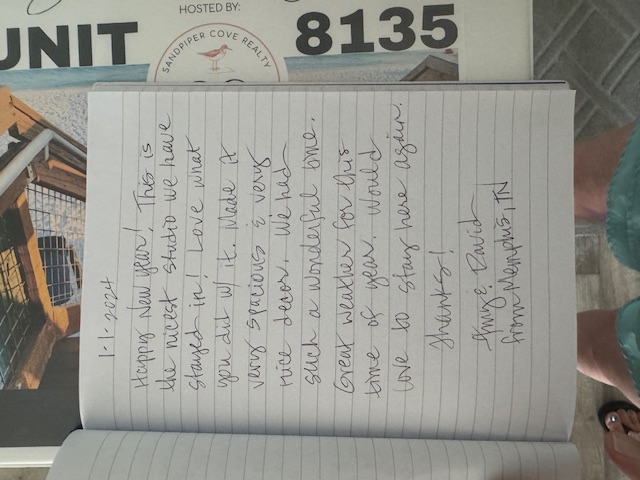 HOSTED BY:
UNIT
SANDPIPER COVE REALTY
8135
1-1-2024
Happy New Year! This is
the nicest studio we have
stayed in! Love what
you did w/ it. Made it
very spacious & very
nice decor. We had
such a wonderful time.
Great weather for this
time of year. Would
love to stay here again.
Thanks!
& David
from Memphis, TN